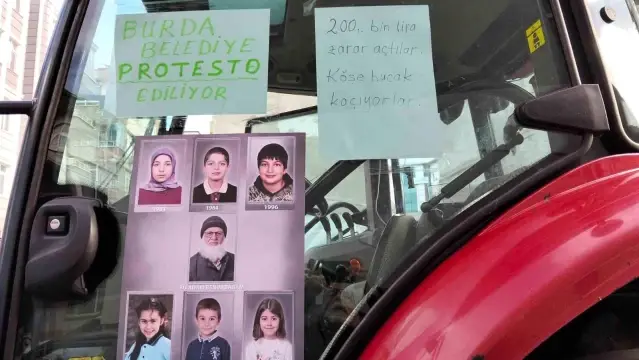 BURDA
BELEDİYE
PROTESTO
EDİLİYOR
200.. bin lira
zarar açtılar.
Köse bucak
kaçıyorlar.
1994
1996